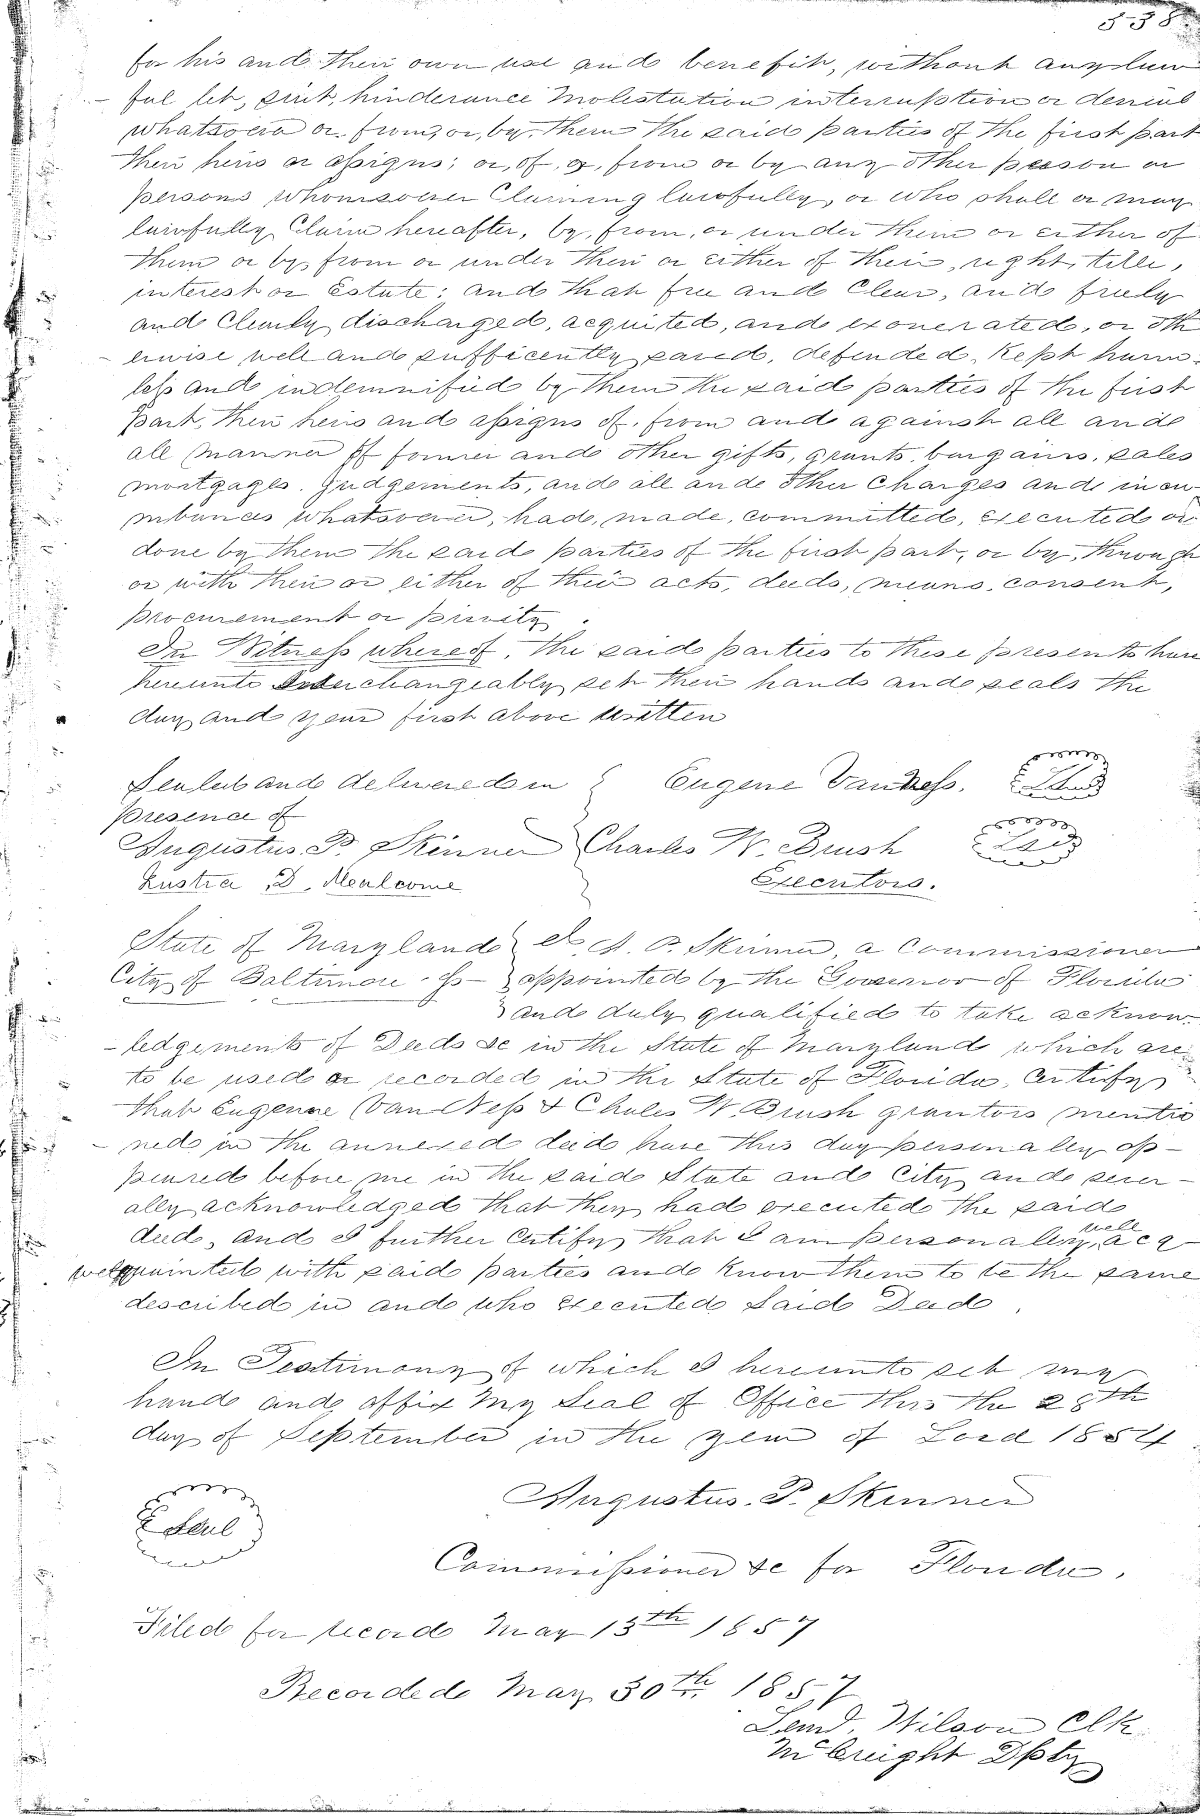 338
for his and their own use and benefit, without any law
ful let, suit, hinderance Molestation interruption or denial
whatsoever or from, or, by, them the said parties of the first part
their heirs or assigns; or, of, or, from or by any other person or
persons whomsoever Claiming lawfully, or who shall or may
lawfully Claim hereafter, by, from, or under them or either of
them or by, from or under their or either of their, right, title,
interest or Estate; and that free and Clear, and freely
and Clearly discharged, acquited, and exonerated, or oth
erwise well and sufficently saved, defended, Kept harm-
less and indemnified by them the said parties of the first
part, their heirs and assigns of, from and against all and
all manner of former and other gifts, grants, bargains, sales
mortgages, Judgements, and all and other Charges and incu-
mbrances whatsoever, had, made, committed, executed or
done by them the said parties of the first part, or by, through
or with their or either of their acts, deeds, means, consent,
procurement or privity.
In Witness whereof, the said parties to these presents have
hereunto Interchangeably set their hands and seals the
day and year first above Written
Sealed and delivered in Eugene VanNess. Seal
presence of
Augustus. P. Skinner Charles W. Brush Seal
D. Executors.
State of Maryland I A. P. Skinner, a Commissioner
City of Baltimore Ss appointed by the Governor of Florida
and duly qualified to take acknow-
-ledgements of Deeds &c in the State of Maryland which are
to be used or recorded in the State of Florida, Certify
that Eugene Van Ness & Chales W. Brush grantors mentio
-ned in the annexed deed have this day personally ap-
peared before me in the said State and City and sever-
ally acknowledged that they had executed the said
deed, and I further Certify that I am personally well acq-
uainted with said parties and Know them to be the same
described in and who executed Said Deed.
In Testimony of which I hereunto set my
hand and affix My Seal of Office this the 28th
day of September in the year of Lord 1854
Augustus. P. Skinner
Seal
Commissioner &c for Florida.
Filed for record May 13th 1857
Recorded May 30th 1857
Saml. Wilson Clk
McCreight Dpty